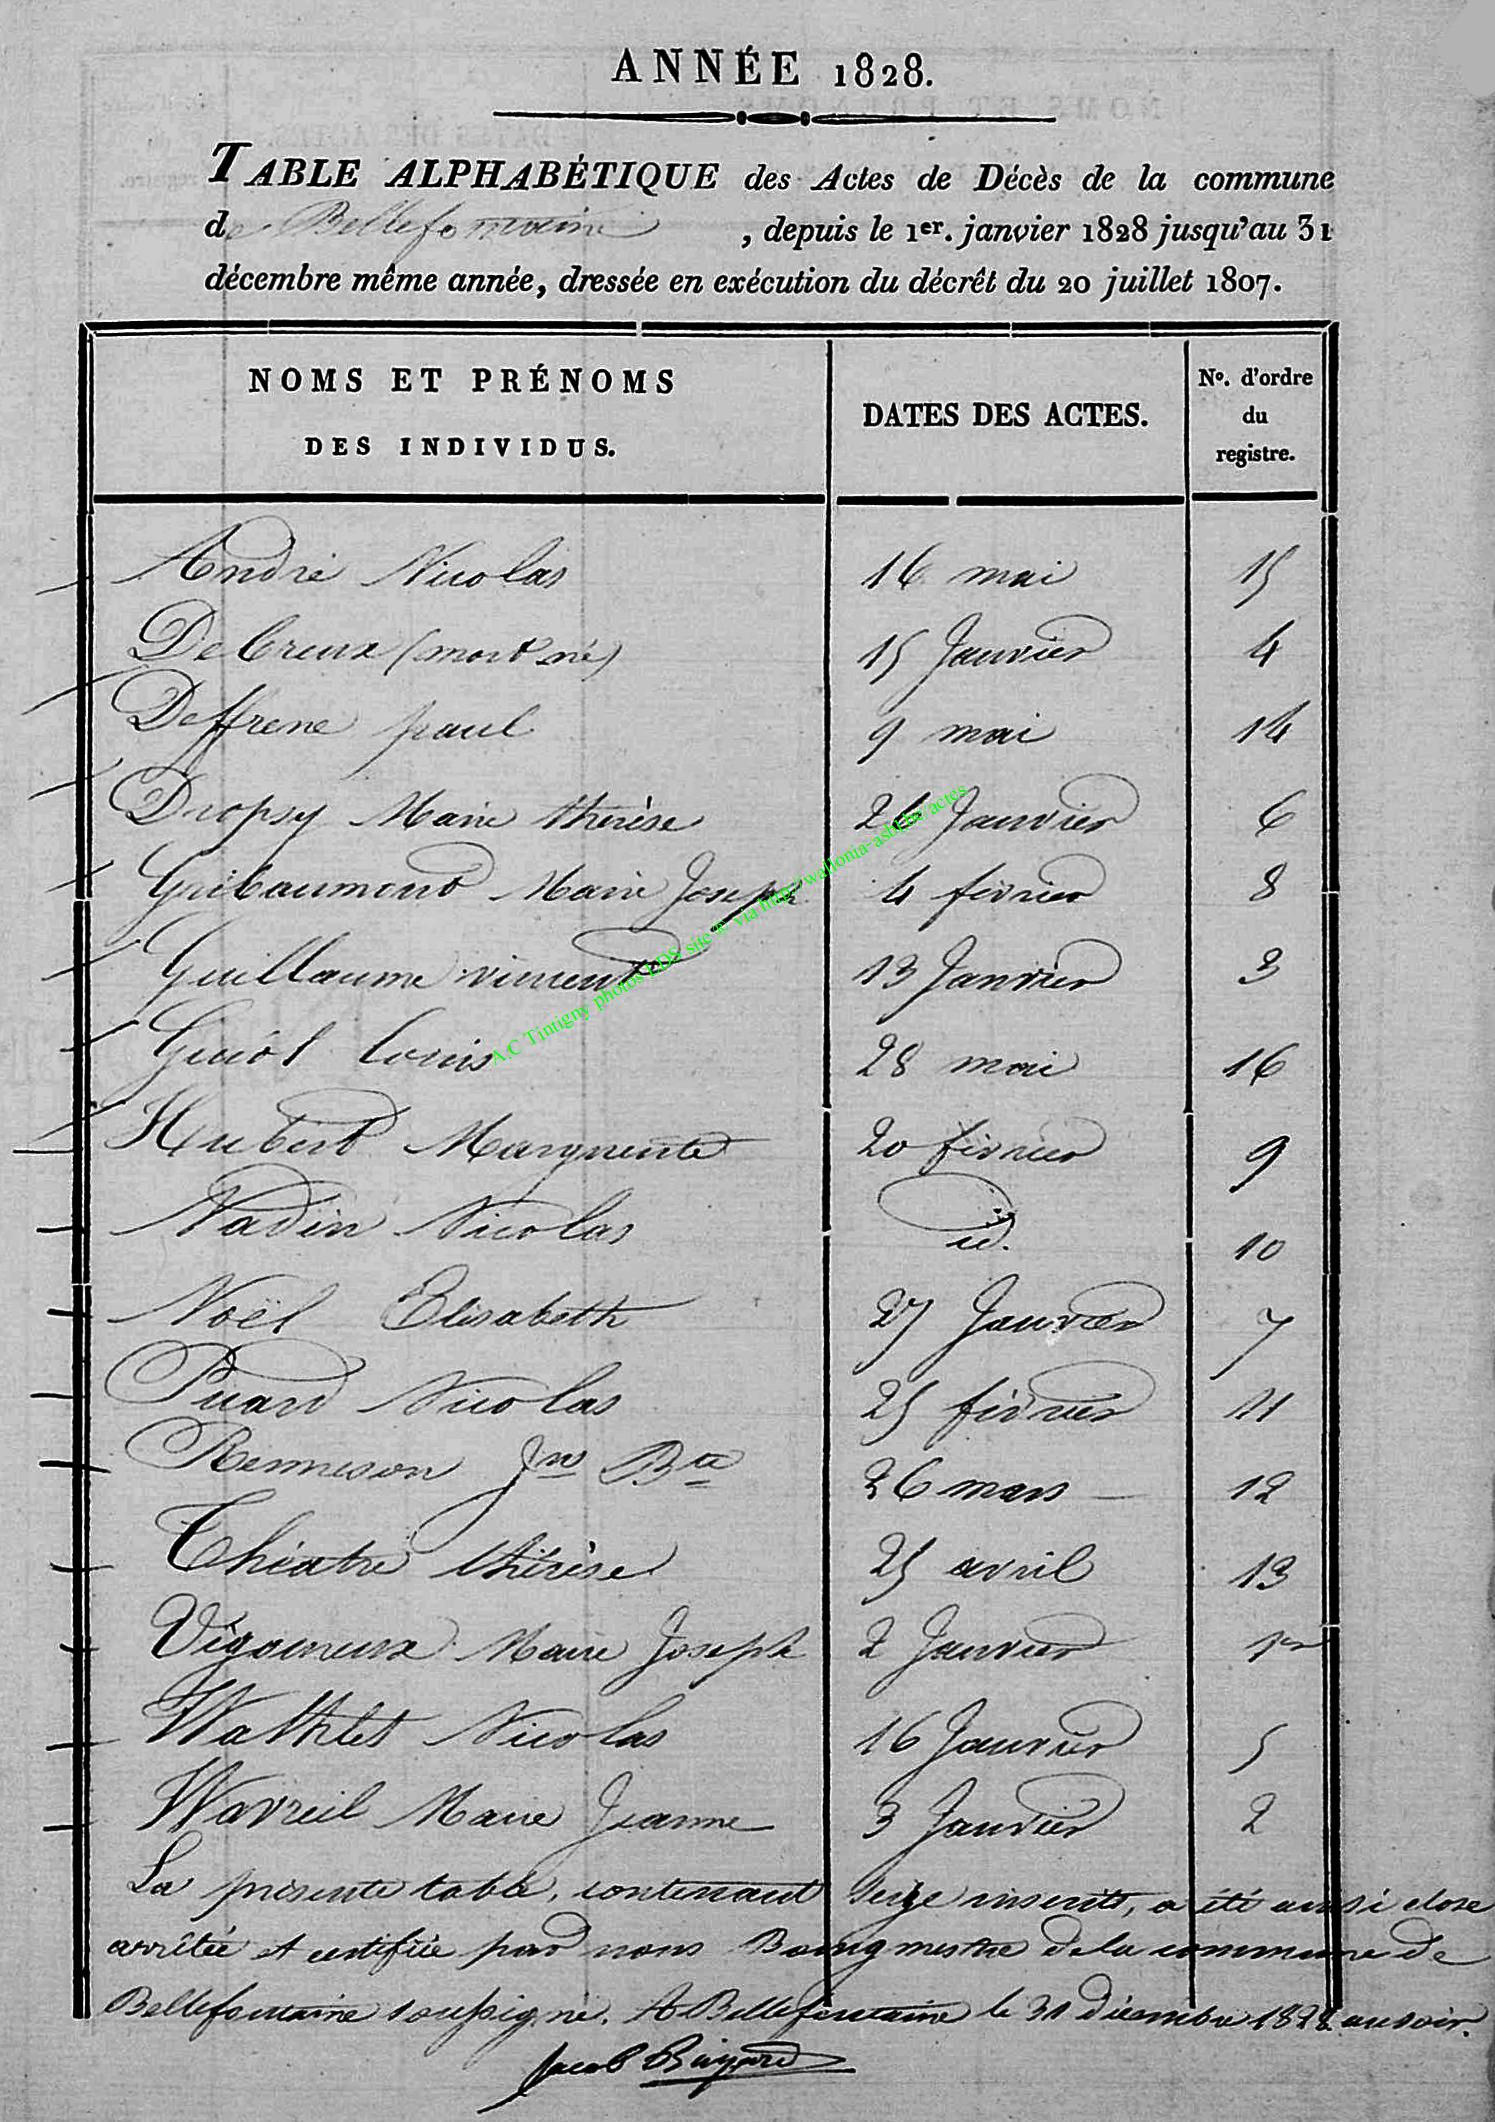 ANNÉE 1828.
TABLE ALPHABÉTIQUE des Actes de Décès de la commune
de Bellefontaine, depuis le 1er. janvier 1828 jusqu'au 31
décembre même année, dressée en exécution du décrêt du 20 juillet 1807.
NOMS ET PRÉNOMS
DES INDIVIDUS.
DATES DES ACTES.
No. d'ordre
du
registre.
André Nicolas 16 mai 15
De Creux (mort né) 15 Janvier 4
Deffrene paul 9 mai 14
Dropsy Marie thérèse 26 Janvier 6
Guibaumont Marie Joseph 4 février 8
Guillaume vincent 13 Janvier 3
Guiot Louis 28 mai 16
Hubert Marguerite 20 février 9
Nadin Nicolas id. 10
Noël Elisabeth 27 Janvier 7
Nicolas 25 février 11
Renneson Jn Bte 26 mars 12
Théatre thérèse 25 avril 13
Vigoureux Marie Joseph 2 Janvier 1er
Wathlet Nicolas 16 Janvier 5
Wavreil Marie Jeanne 3 Janvier 2
La présente table, contenant seize inscrits, a été ainsi close
arrêtée et certifiée par nous Bourgmestre de la commune de
Bellefontaine soussigné. A Bellefontaine le 31 décembre 1828 au soir.
Jacob
A.C Tintigny photos EDS site © via http://wallonia-asbl.be/actes